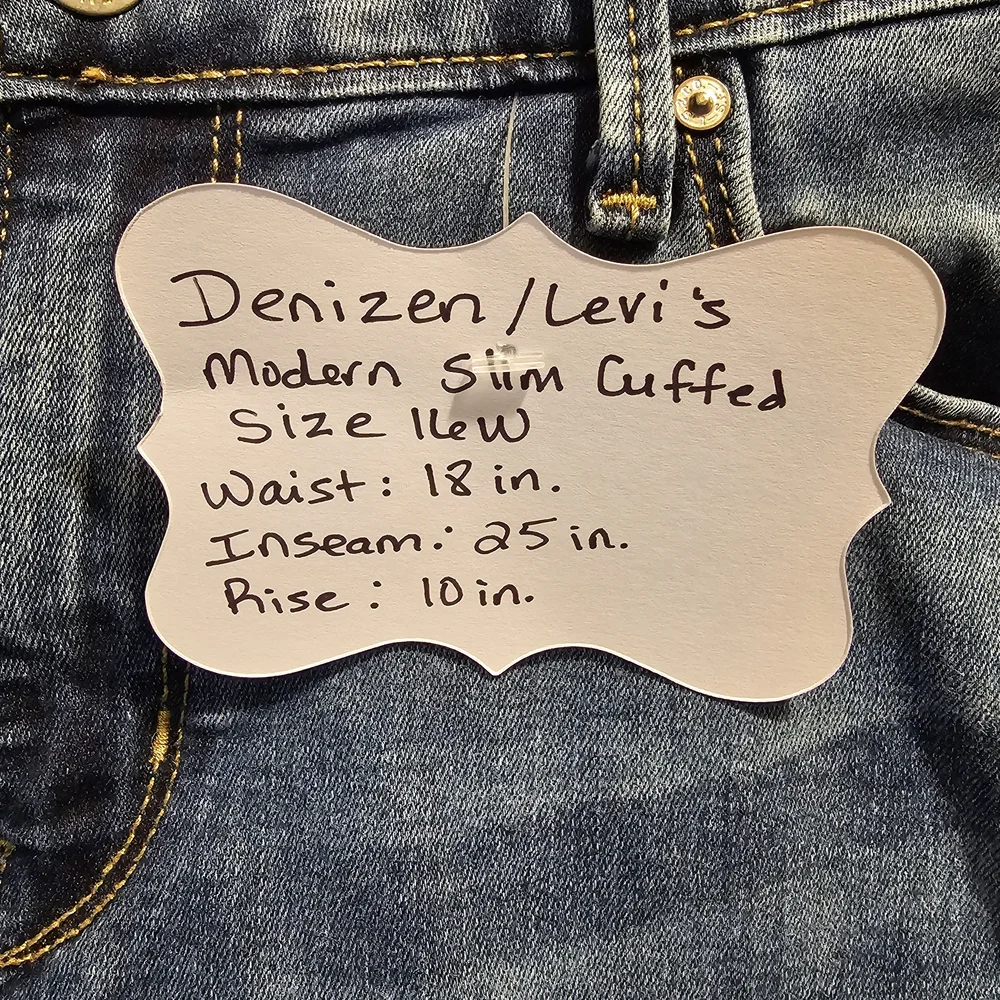 Denizen/Levi's
Modern Slim Cuffed
Size 16W
Waist: 18 in.
Inseam: 25 in.
Rise: 10 in.